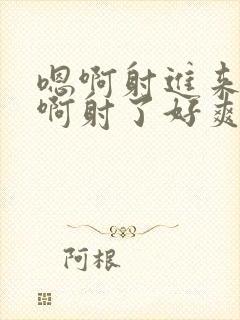 嗯啊射进来
啊射了好爽
阿根